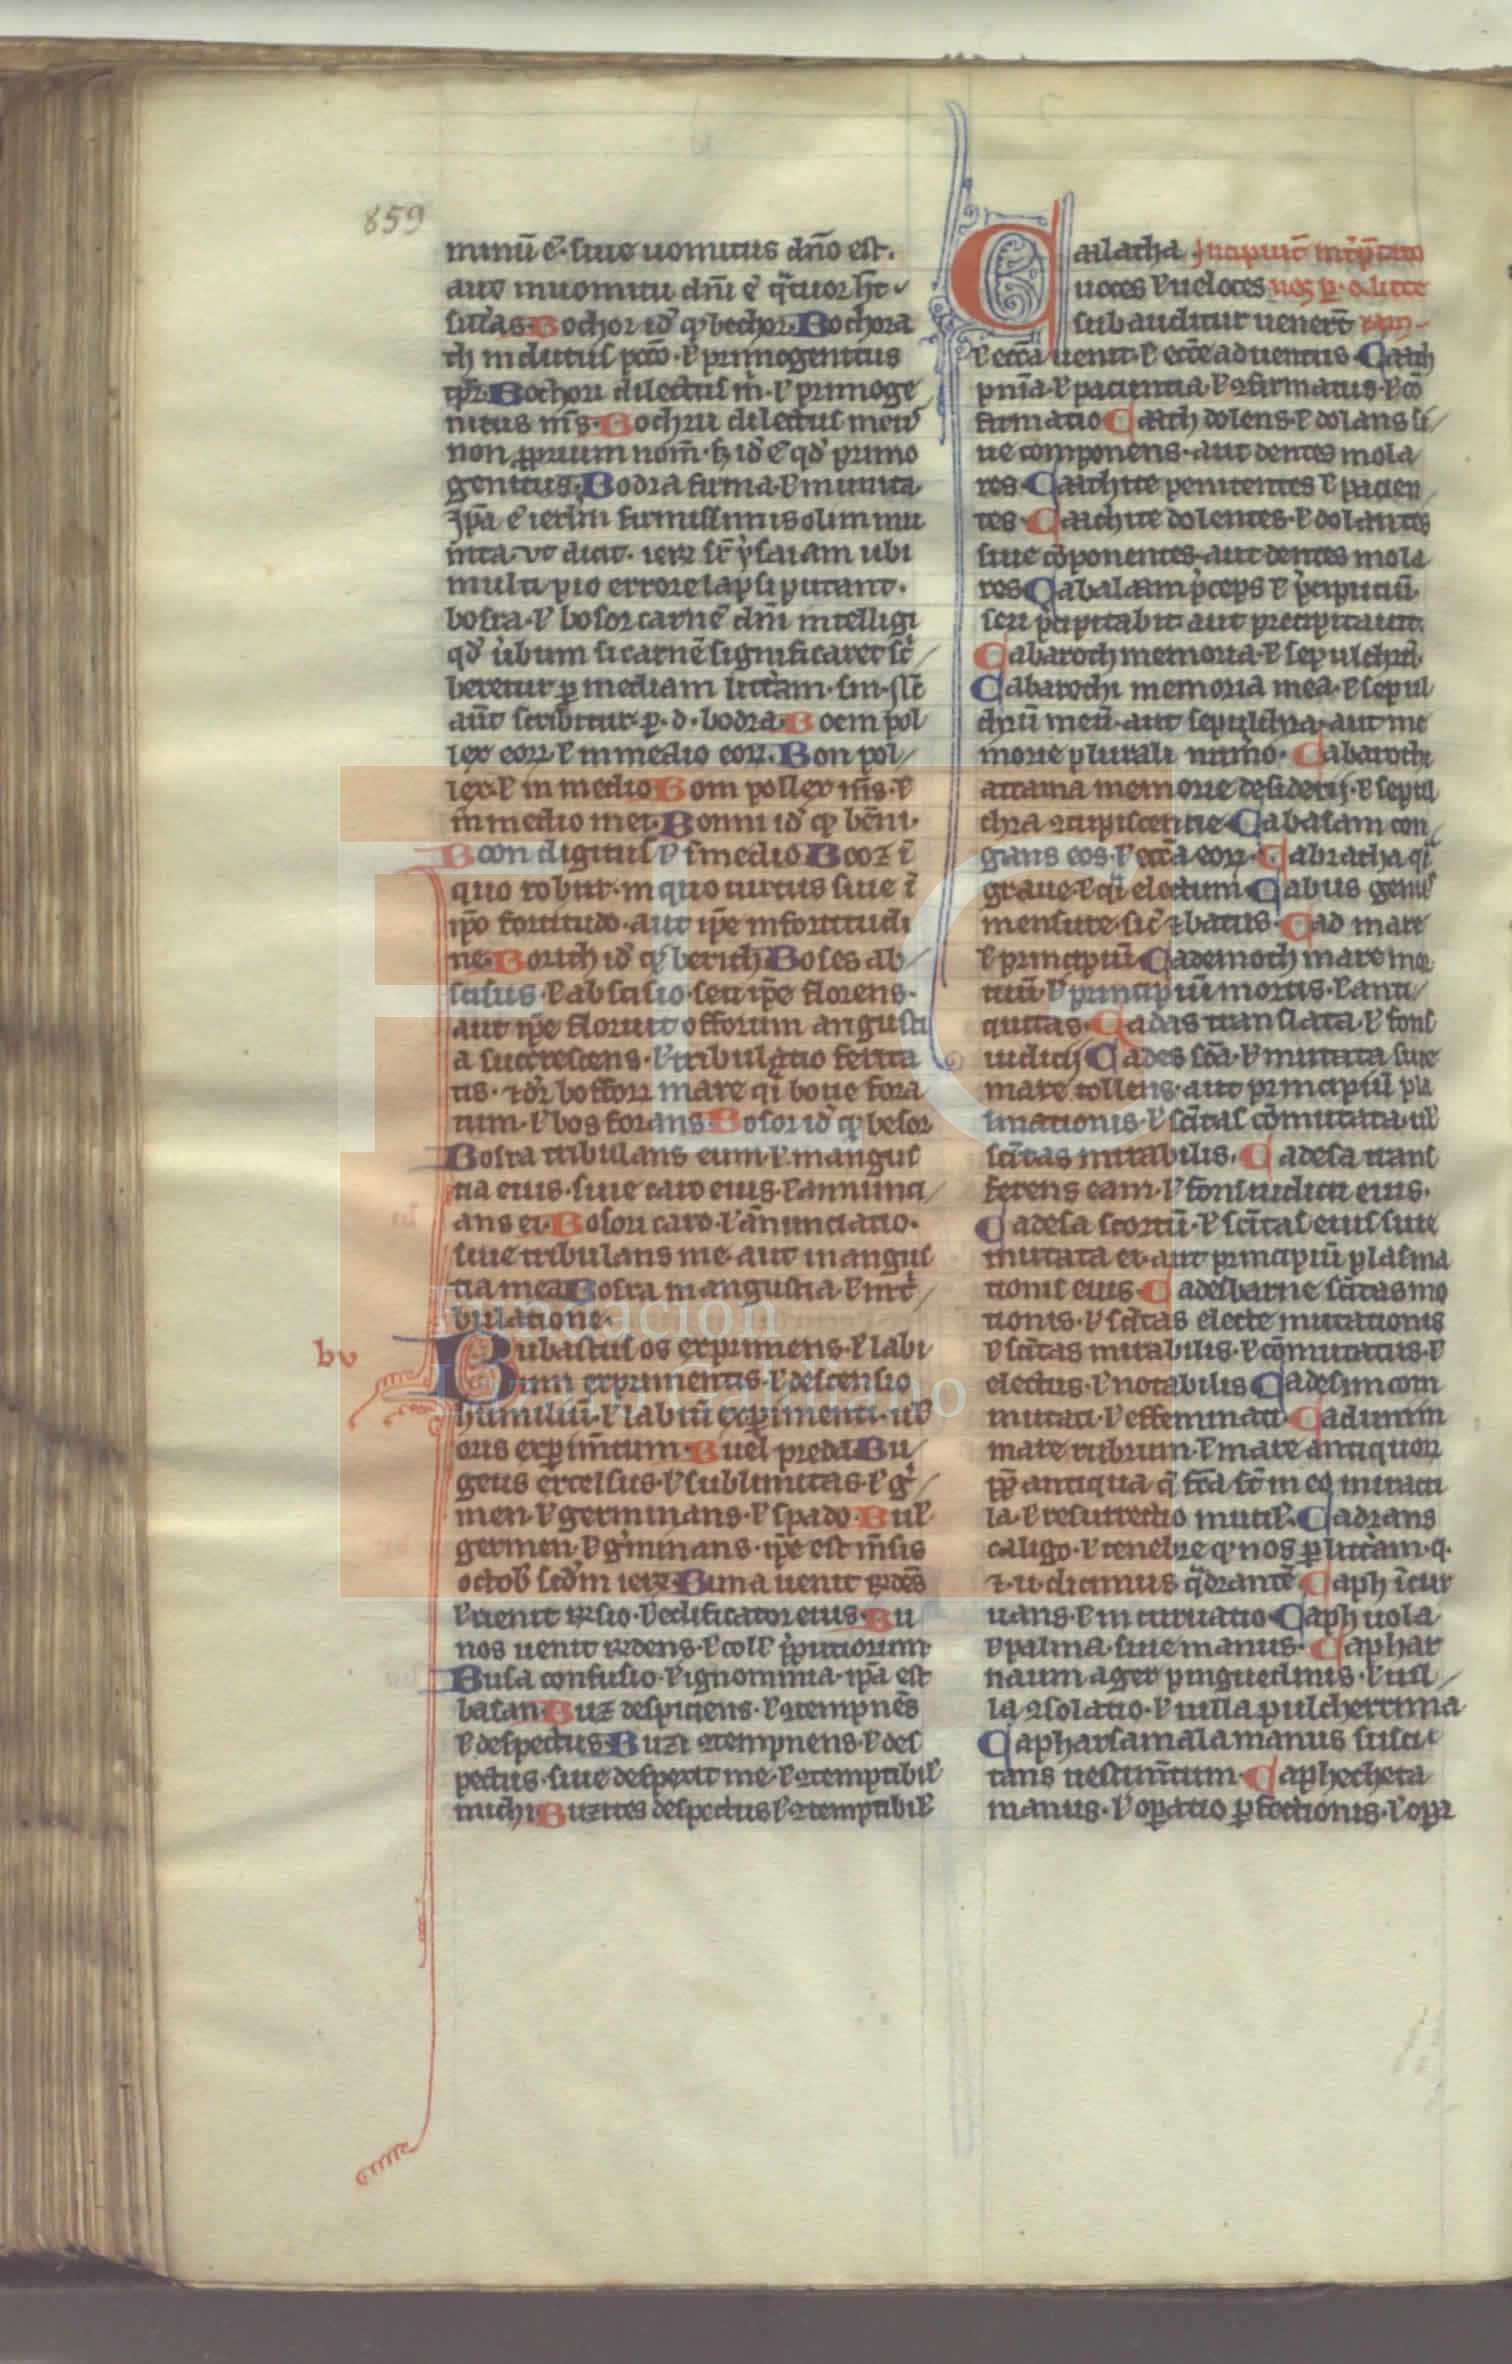 859
minū ē· siue uomitus dn̄o est.
aut in uomitu dn̄i ē
Bochor id' q' bechor· Bochora
th in clutus l' primogenitus
Bochori dilectus m̄· l' primoge
nitus m's· Bochru dilectus meus
non propriu nom̄· s; id' ē qd' primo
genitus· Bodra firma· l' munita
Ip̄a ē ierl'm firmissimis olim mu
nita· vt dicit· sciam ubi
multi pio errore lapsi putant·
bosra· l' bosor carne dn̄i intelligi
qd' ubum si carnē significaret sc'
beretur p mediam litteram·
aut scribitur p· d· bodra· Boem pol
lex eorr· l' in medio eorr· Bon pol
lex· l' in medio Boni pollex m's· l'
in medio mei· Bonni id' q' bēni·
Boon digitus l' ī medio Booz ī
quo robur· in quo uirtus siue ī
ip̄o fortitudo· aut ip̄e in fortitudi
ne· Borith id' q' berith Boses ab
scisus· l' abscisio· seu ip̄e florens·
aut ip̄e floruit offorum angusti
a succrescens· l' tribulatio ferita
tis· mare q' boue fora
tum· l' bos forans Bosor id' q' besor
Bosra tribulans eum· l' in angus
tia eius· siue caro eius· l' annunci
ans ei· Bosori caro· l' ānunciatio·
siue tribulans me· aut in angus
tia mea Bosra in angustia· l' in t'
bulatione·
bv
Bubastus os exprimens· l' labi
um exprimentis· l' descensio
humiliū· l' labiū exprimenti· ul'
oris exprimtum· Buel predii Bu
geus excelsus· l' sublimitas· l' g'
men· l' germinans· l' spado· Bul'
germen· l' g'minans· ip̄e est m̄sis
octob' sc'dm ierr· Buna uenit
l' uenit· l' edificator eius· Bu
nos uenit
Busa confusio· l' ignominia· ip̄a est
basan· Buz despiciens· l' 9tempnēs
l' despectus· Buzi 9tempnens· l' des
pectus· siue despexit me· l' 9temptibil'
michi Buzites despectus l' 9temptibil'
Cailatha Incipiūt
uoces l' ueloces
subauditur uenerūt
l' ecc̄a uenit· l' ecc̄e aduentus· Caath
pn̄ia· l' pacientia· l' 9firmatus· l' cō
firmatio Caath dolens· l' dolans si
ue componens· aut dentes mola
res· Caathite penitentes l' pacien
tes· Caathite dolentes· l' dolantes
siue cōponentes· aut dentes mola
res Cabalaam p'ceps l' p'cipiciū·
seu p'cipitabit· aut precipitauit·
Cabaroth memoria· l' sepulchrū·
Cabarothi memoria mea· l' sepul
chrū meū· aut sepulchra· aut me
morie plurali num'o· Cabaroth
attaua memorie desiderii· l' sepul
chra 9cupiscentie Cabasam con
gans eos· l' ecc̄a eorr· Cabratha q'i
graue· l' q'i electum· Cabus genus
mensure· sic' & batus· Cad mare
l' principiū· Cademoth mare mor
tuū· l' principiū mortis· l' anti
quitas· Cadas translata· l' fons
iudicij Cades sc̄a· l' mutata· siue
mare tollens· aut principiū pla
smationis· l' sc̄itas cōmutata· ul'
sc̄itas mirabilis· Cadesa trans
ferens eam· l' fons iudicii eius·
Cadesa scortū· l' sc̄itas eius siue
mutata ei· aut principiū plasma
tionis eius· Cadesbarne sc̄itas mo
tionis· l' sc̄itas electe mutationis
l' sc̄itas mirabilis· l' cōmutatus· l'
electus· l' notabilis Cadesim com
mutati· l' effeminati· Cadumim
mare rubrum· l' mare antiquorr
pp̄ antiqua q' fc̄a st' in eo miracu
la· l' resurrectio Cadrans
caligo· l' tenebre q' nos p litteram· q·
& u dicimus q'drantē Caph īcur
uans· l' incuruatio Caph uola·
l' palma· siue manus· Caphar
naum ager pinguedinis· l' uil
la 9solatio· l' uilla pulcherrima
Capharsamala manus susci
tans uestim̄tum· Caphecheta
manus· l' op̄atio pfectionis· l' opp̄r